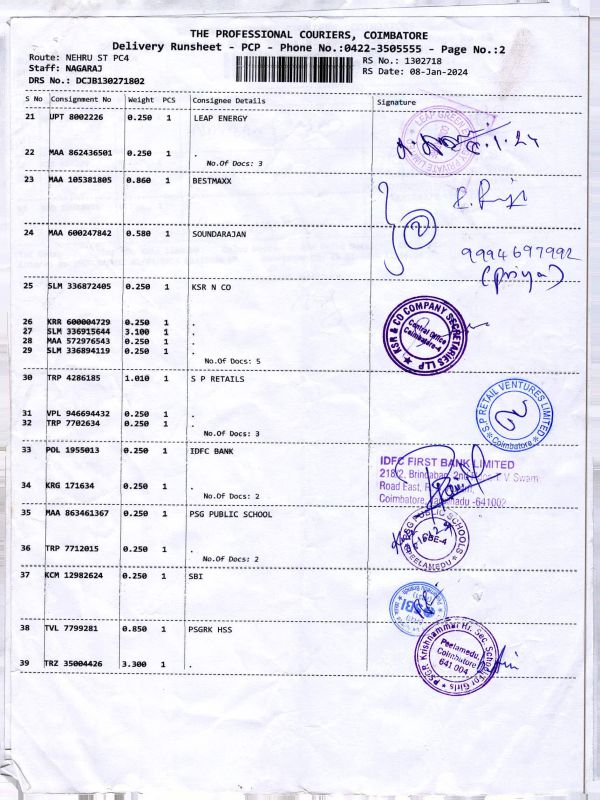 THE PROFESSIONAL COURIERS, COIMBATORE
Delivery Runsheet - PCP - Phone No.:0422-3505555 - Page No.:2
Route: NEHRU ST PC4 RS No.: 1302718
Staff: NAGARAJ RS Date: 08-Jan-2024
DRS No.: DCJB130271802
S No Consignment No Weight PCS Consignee Details Signature
21 UPT 8002226 0.250 1 LEAP ENERGY
22 MAA 862436501 0.250 1 .
No.Of Docs: 3
23 MAA 105381805 0.860 1 BESTMAXX
24 MAA 600247842 0.580 1 SOUNDARAJAN
9994697992
(priya)
25 SLM 336872405 0.250 1 KSR N CO
KSR & CO COMPANY SECRETARIES LLP
Central Office
Coimbatore-4
26 KRR 600004729 0.250 1 .
27 SLM 336915644 3.100 1 .
28 MAA 572976543 0.250 1 .
29 SLM 336894119 0.250 1 .
No.Of Docs: 5
30 TRP 4286185 1.010 1 S P RETAILS
S.P RETAIL VENTURES LIMITED
Coimbatore
31 VPL 946694432 0.250 1 .
32 TRP 7702634 0.250 1 .
No.Of Docs: 3
33 POL 1955013 0.250 1 IDFC BANK
IDFC FIRST BANK LIMITED
218/2, Brindaban, 2nd V Swam
Road East,
Coimbatore, Tamilnadu -641002
34 KRG 171634 0.250 1 .
No.Of Docs: 2
35 MAA 863461367 0.250 1 PSG PUBLIC SCHOOL
PSG PUBLIC SCHOOLS
PEELAMEDU
36 TRP 7712015 0.250 1 .
No.Of Docs: 2
37 KCM 12982624 0.250 1 SBI
SBI
38 TVL 7799281 0.850 1 PSGRK HSS
PSGR Krishnammal Hr. Sec. School For Girls
Peelamedu,
Coimbatore
641 004
39 TRZ 35004426 3.300 1 .